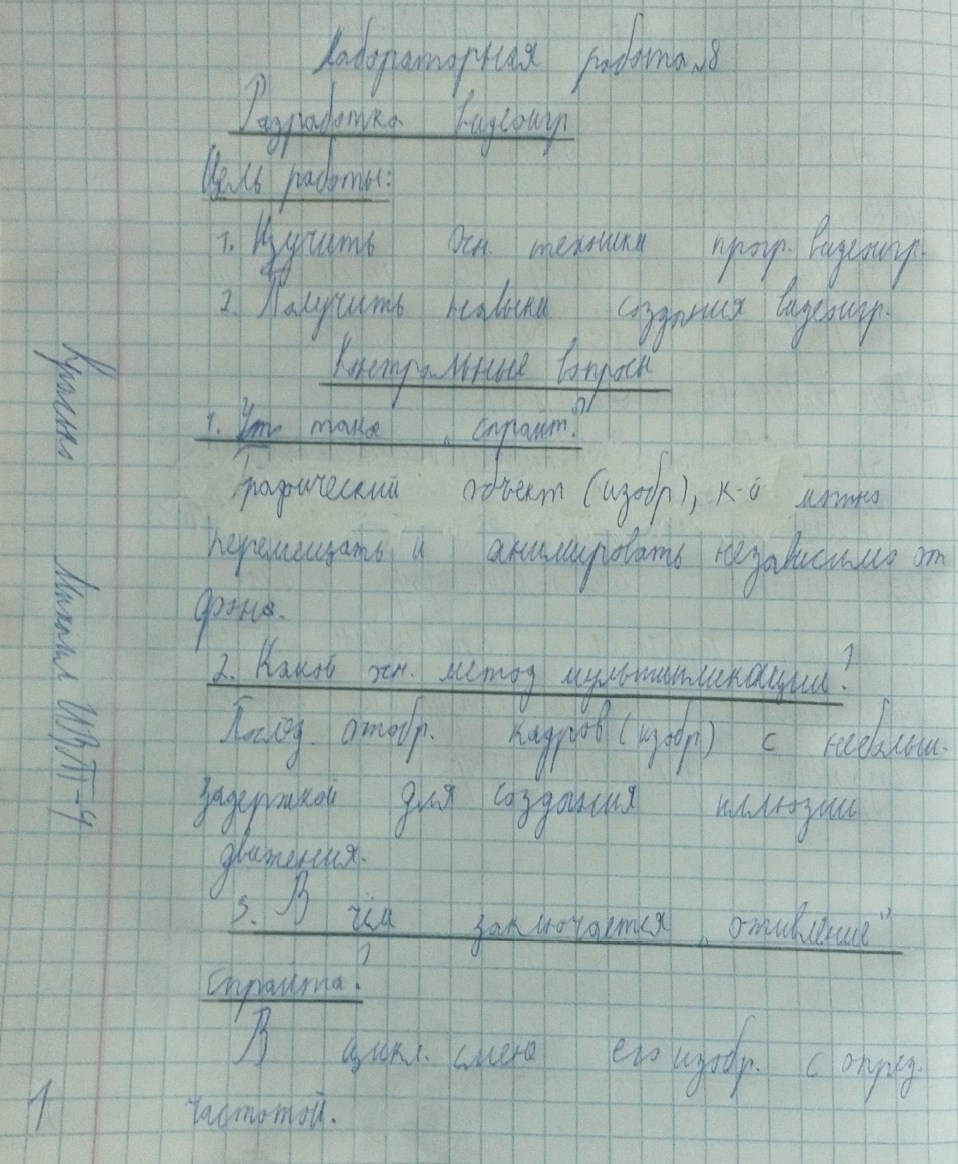 Лабораторная работа 8
Разработка видеоигр
Цель работы:
1. Изучить осн. техники прогр. видеоигр.
2. Получить навыки создания видеоигр.
Контрольные вопросы
1. Что такое „спрайт"?
Графический объект (изобр), к-й можно
перемещать и анимировать независимо от
фона.
2. Какой осн. метод мультипликации?
Послед. отобр. кадров (изобр) с небольш.
задержкой для создания иллюзии
движения.
3. В чём заключается „оживление"
спрайта?
В цикл. смене его изобр. с опред.
частотой.
Михаил
1